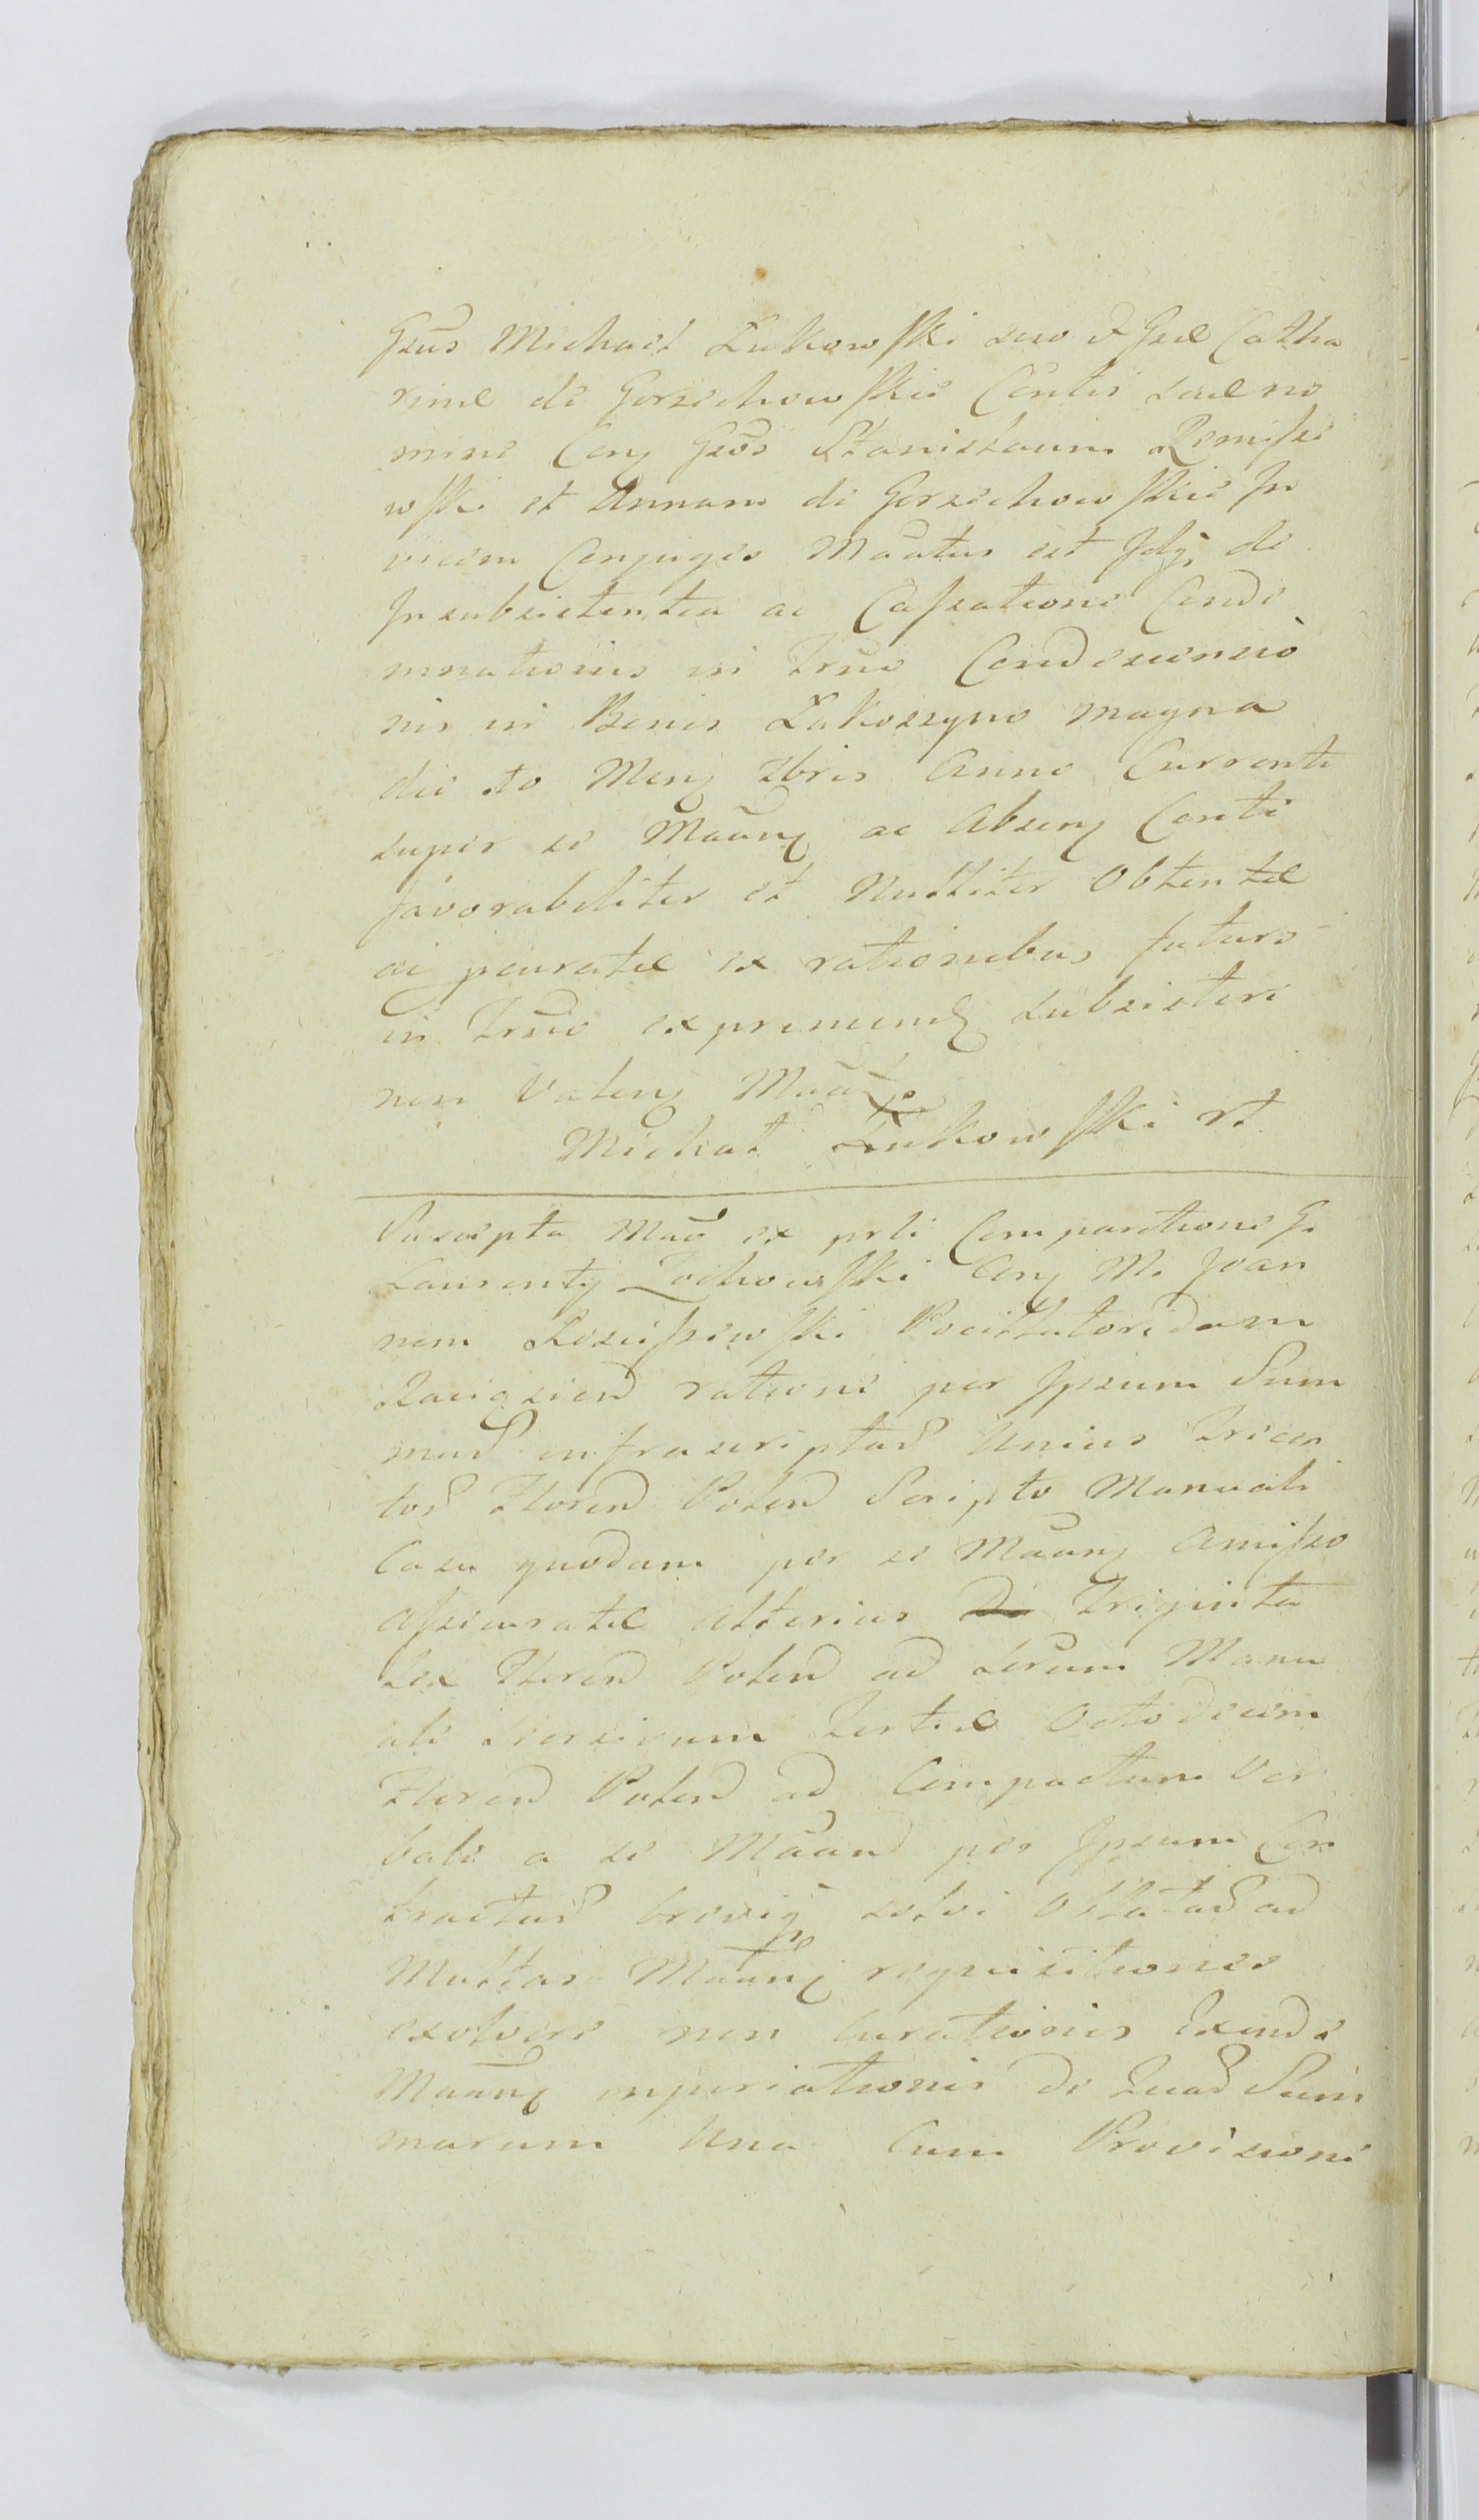 Gsus Michael Łukowski suo & Gsæ Catha
rinæ de Gorzechowskie Contis suæ no
mine Con Gsos Stanislaum Remisze
wski et Annam de Gorzechowskie In
vicem Conjuges Mãatus est Idq de
Insubsistentia ac Cassatione Conde
mnationis in Trno Condescensio
nis in Bonis Łukoszyno magna
die .to Men Xbris Anno Currenti
super se Mãan ac Absen Conte
favorabiliter et Nulliter Obtentæ
ac juratæ ex rationibus futuro
in Trnio exprimen subsistere
non Valen Mãa
Michał Łukowski rt
Suscepta Mãã ex prli Comparitione G.
Laurenty Zochowski Con M. Joan
nem Pociltatoredam
Raciąziens ratione per Ipsum Sum
mas infrascriptas Unius Tricen
tos Floren Polon Scripto Manuali
Casu quodam per se Mãan Amisso
Assecuratæ Alterius Triginta
sex Floren Polon ad sirum Manu
ale Tertiæ Octodecim
Floren Polon ad Compactum Ver
bale a se Mãan per Ipsum Con
tractas breviq solvi Oblatas ad
Multas Mãan requisitiones
exolvere non curationis Exinde
Mãan injuriationis de Quas Sum
marum Una Cum Provisione